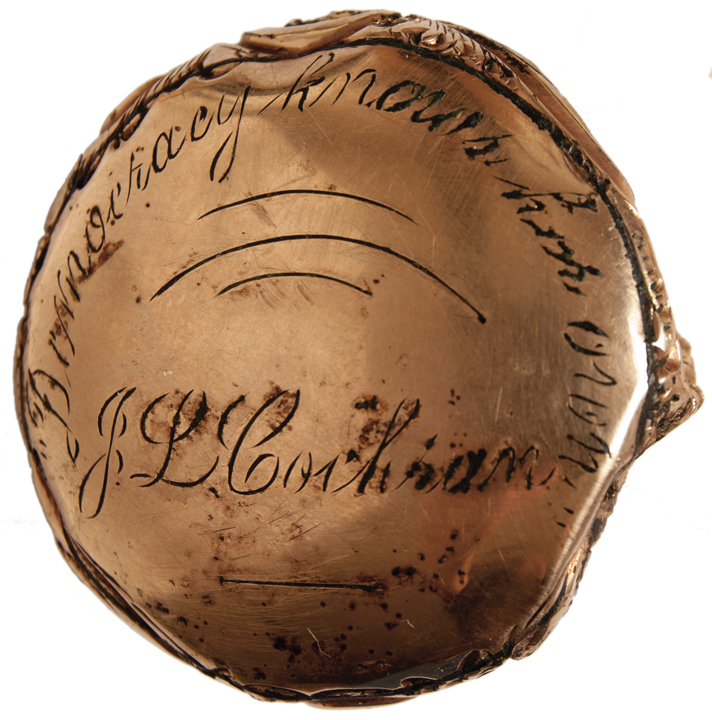 "Democracy knows her own"
J. L. Cochran